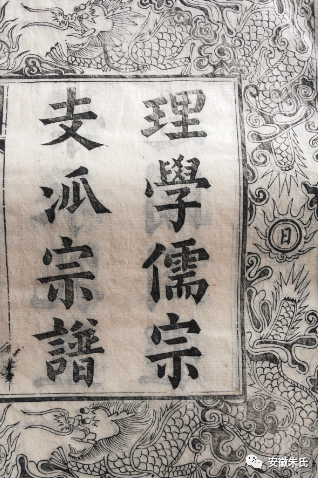 理學儒宗
支泒宗譜
日
安徽朱氏